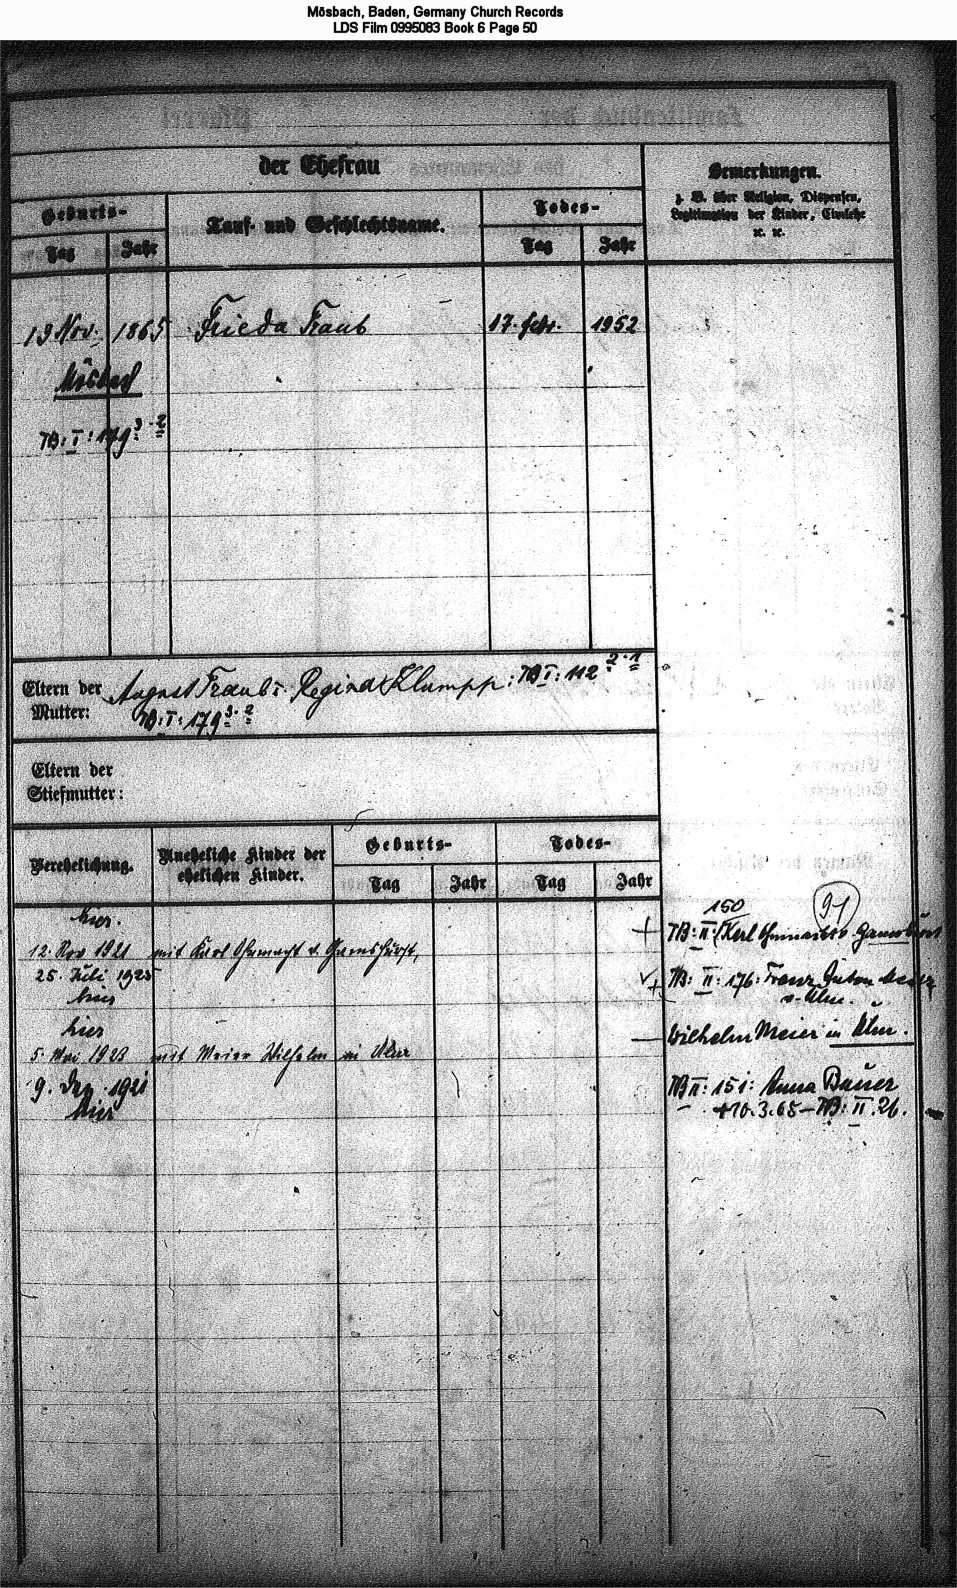 Mösbach, Baden, Germany Church Records
LDS Film 0995083 Book 6 Page 50
der Ehefrau
Bemerkungen.
z. B. über Religion, Dispensen,
Legitimation der Kinder, Civilehe
ꝛc. ꝛc.
Geburts-
Tauf- und Geschlechtsname.
Todes-
Tag
Jahr
Tag
Jahr
19 Nov. 1865 Frieda Traub 17. febr. 1952
Mösbach
TB: I: 179 3. 2
Eltern der
Mutter:
August Traub u. Regina Klumpp: TB I: 112 2. 1
TB: I: 179 3. 2
Eltern der
Stiefmutter:
Verehelichung.
Uneheliche Kinder der
ehelichen Kinder.
Geburts-
Todes-
Tag
Jahr
Tag
Jahr
hier.
150
91
12. Nov 1921 mit Karl v. Gamshürst,
TB: II Karl v. Gamshürst
25. Juli 1925
hier
TB: II: 176: Franz Anton
v. Ulm.
hier
5. Mai 1923 mit Meier Wilhelm in Ulm
Wilhelm Meier in Ulm.
9. Dez. 1921
hier
TB II: 151: Anna Bauer
+10.3.65 – TB: II. 26.